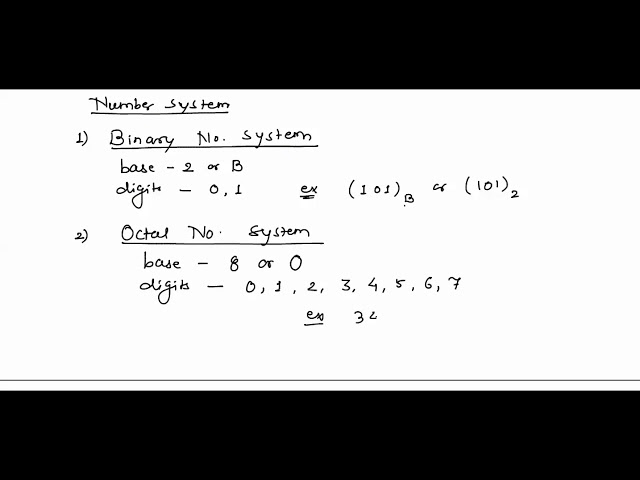 Number system
1) Binary No. system
base - 2 or B
digits - 0, 1 ex (101)B or (101)2
2) Octal No. system
base - 8 or O
digits - 0, 1, 2, 3, 4, 5, 6, 7
ex 34